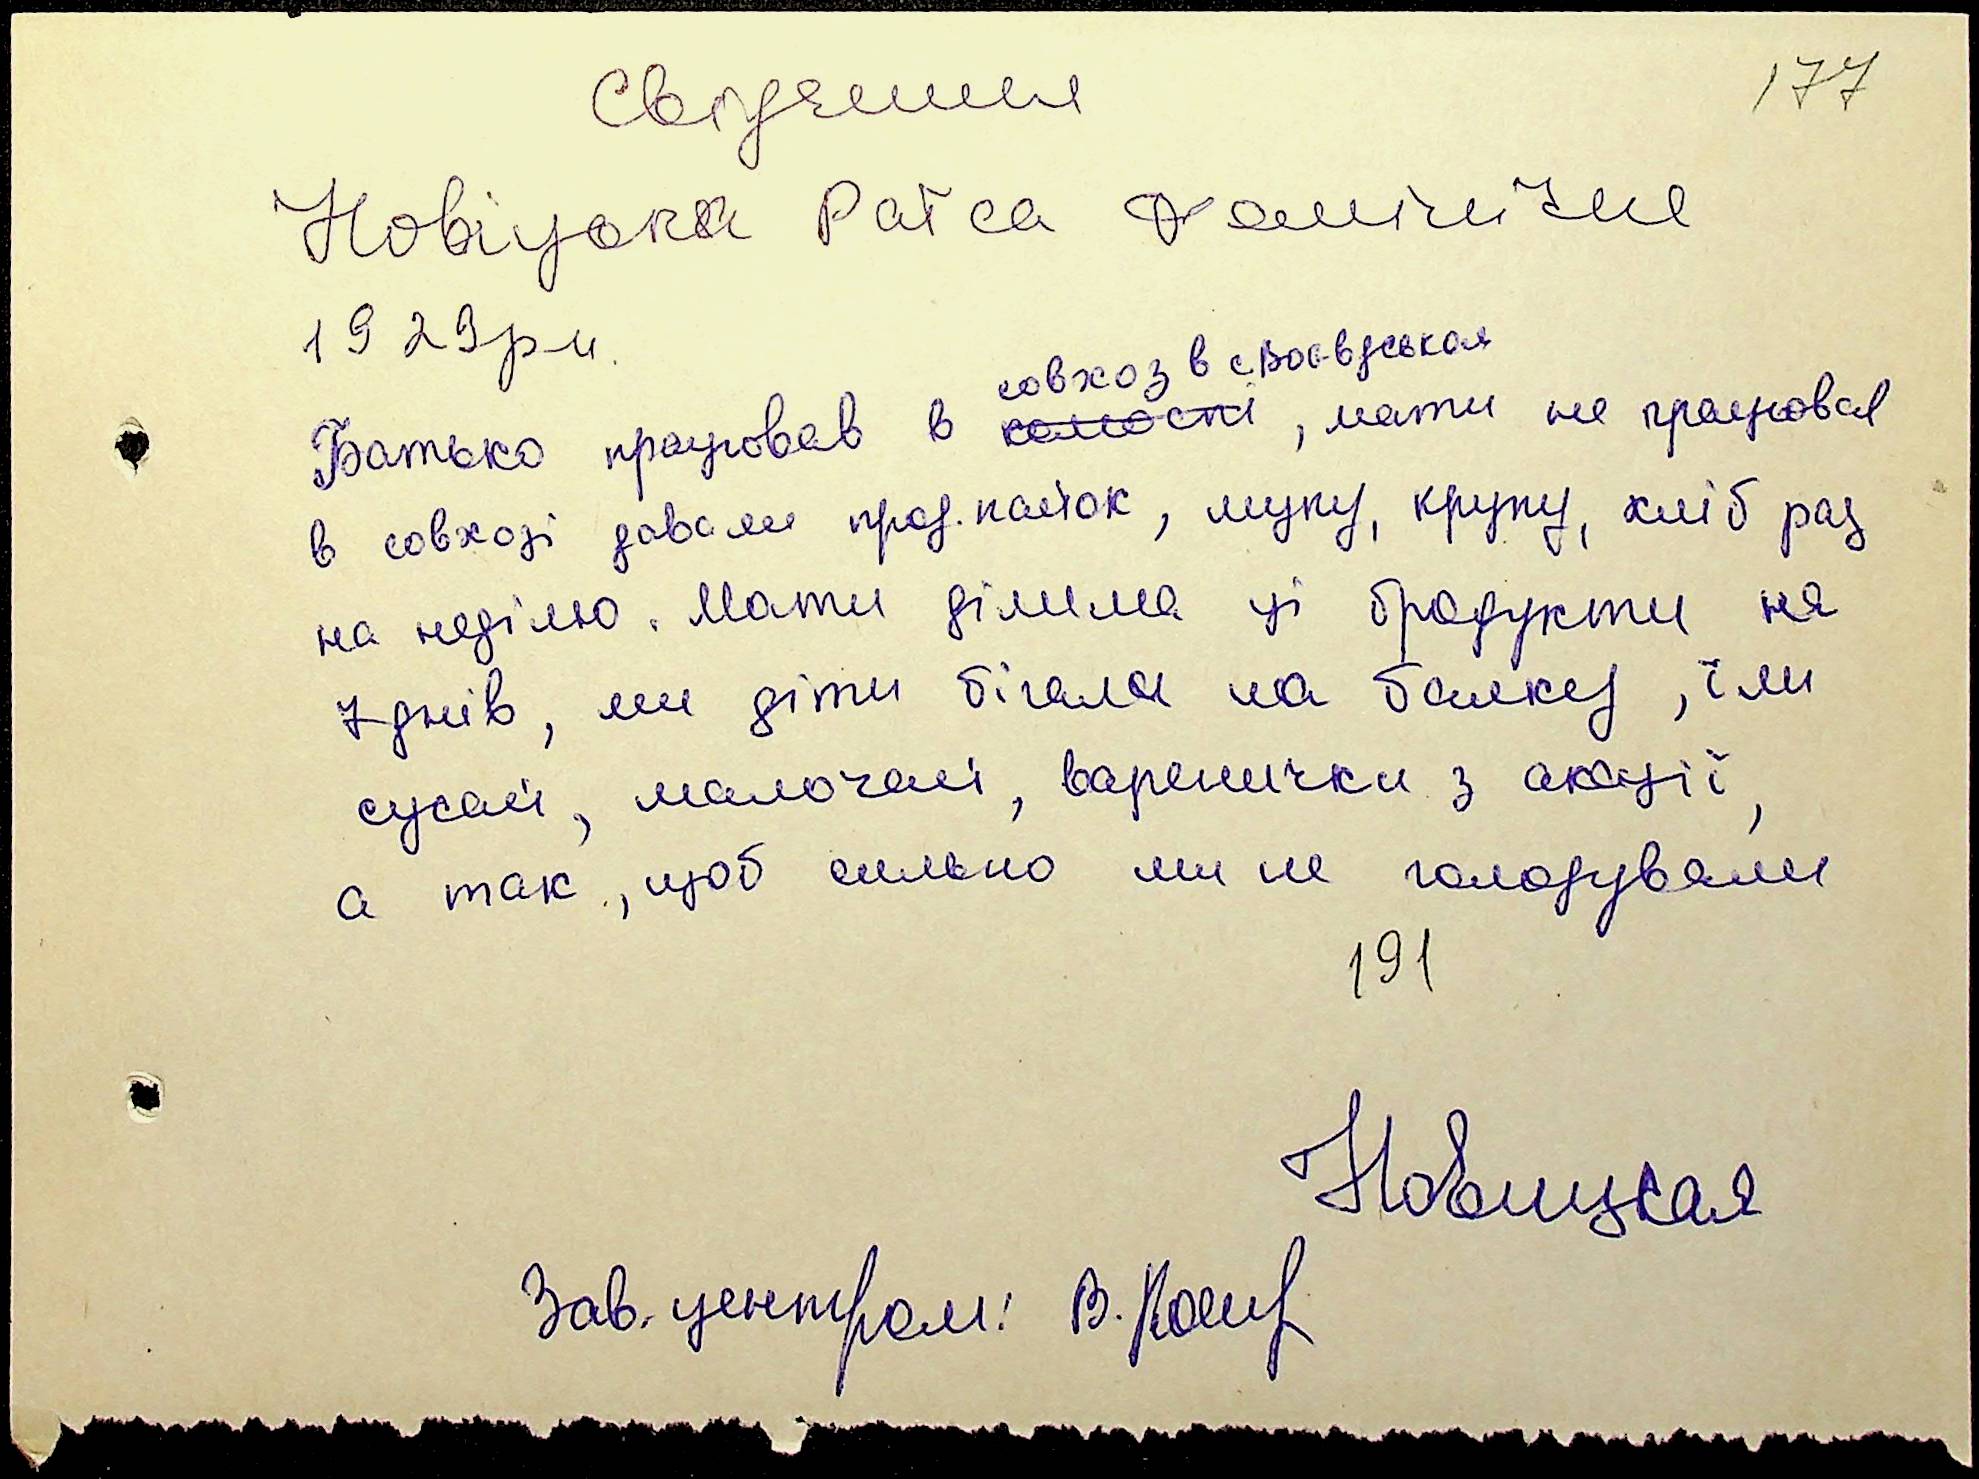 177
Свідення
Новіцька Раїса Фомінічна
1929 р.н.
совхоз в с. Воєвдськая
Батько працював в , мати не працювал
в совхозі давали прод.пайок, муку, крупу, хліб раз
на неділю. Мати ділила ці продукти на
7 днів, ми діти бігали на балку, їли
сусаїі, малочаї, варенички з акації,
а так, щоб сильно ми не голодували
191
Новицкая
Зав. центром: В.